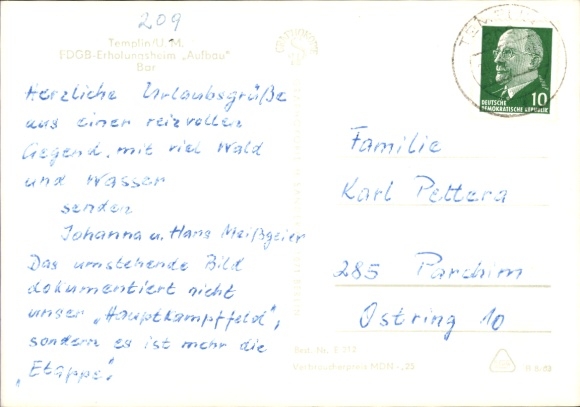 209
Templin/U. M.
FDGB-Erholungsheim „Aufbau"
Bar
TEMPLIN
DEUTSCHE
DEMOKRATISCHE REPUBLIK
10
Herzliche Urlaubsgrüße
aus einer reizvollen
Gegend, mit viel Wald
und Wasser
senden
Johanna u. Hans Meißgeier
Das umstehende Bild
dokumentiert nicht
unser „Hauptkampffeld",
sondern es ist mehr die
„Etappe".
Familie
Karl Pettera
285 Parchim
Ostring 10
Best. Nr. E 312
Verbraucherpreis MDN -,25